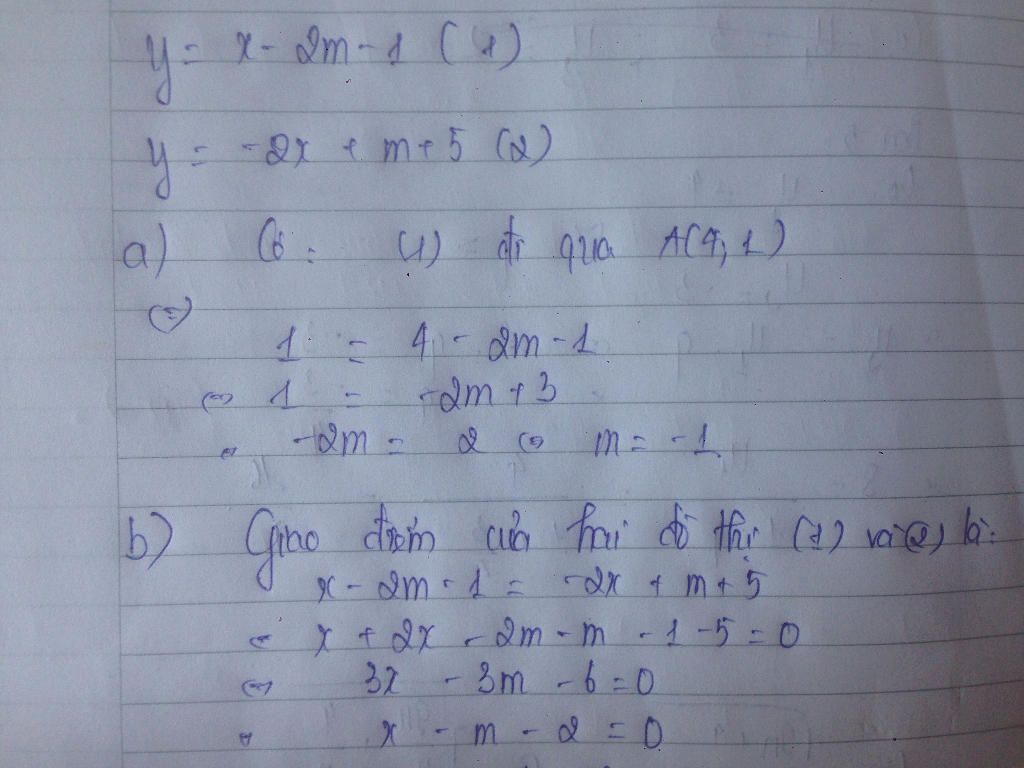 y = x - 2m - 1 (1)
y = -2x + m + 5 (2)
a) Có: (1) đi qua A(4, 1)
⇔
1 = 4 - 2m - 1
⇔ 1 = -2m + 3
⇔ -2m = 2 ⇔ m = -1
b) Giao điểm của hai đồ thị (1) và (2) là:
x - 2m - 1 = -2x + m + 5
⇔ x + 2x - 2m - m - 1 - 5 = 0
⇔ 3x - 3m - 6 = 0
⇔ x - m - 2 = 0